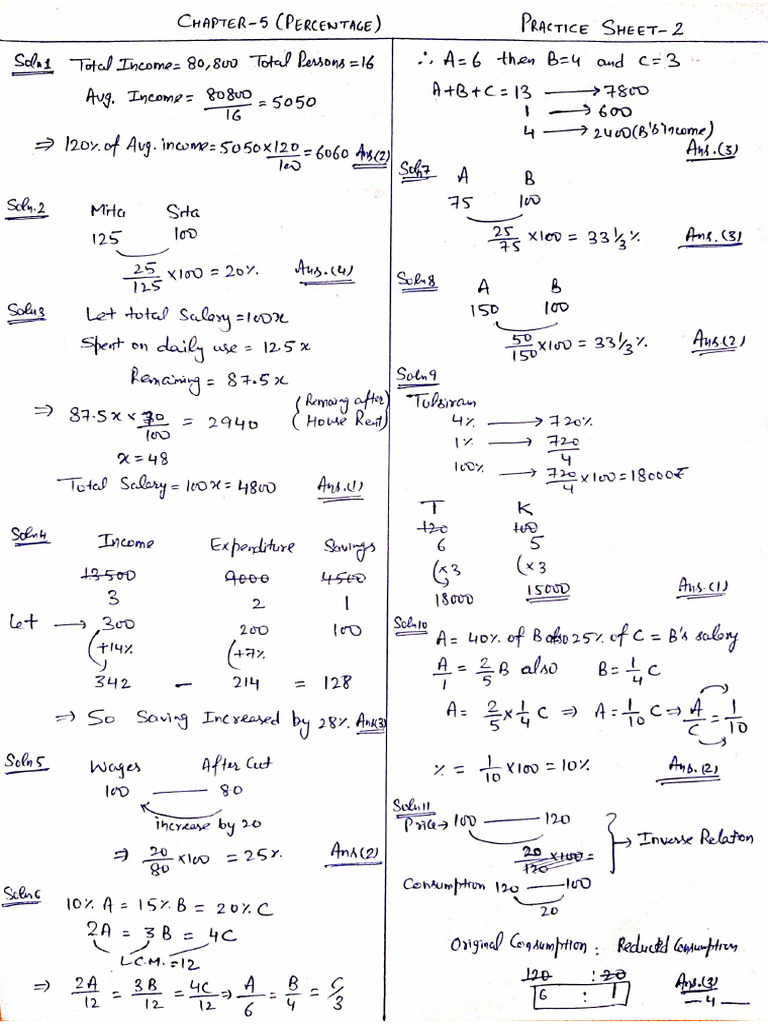 CHAPTER-5 (PERCENTAGE)
PRACTICE SHEET-2
Soln1 Total Income = 80,800 Total Persons = 16
Avg. Income = 80800/16 = 5050
⇒ 120% of Avg. income = 5050 × 120/100 = 6060 Ans(2)
Soln.2 Mita Sita
125 100
25/125 × 100 = 20% Ans.(4)
Soln3 Let total Salary = 100x
Spent on daily use = 12.5x
Remaining = 87.5x
⇒ 87.5x × 70/100 = 2940 (Remaing after House Rent)
x = 48
Total Salary = 100x = 4800 Ans.(1)
Soln4 Income Expenditure Savings
13500 9000 4500
3 2 1
Let → 300 200 100
(+14% (+7%
342 − 214 = 128
⇒ So Saving Increased by 28% Ans(3)
Soln5 Wages After Cut
100 — 80
increase by 20
⇒ 20/80 × 100 = 25% Ans(2)
Soln6 10% A = 15% B = 20% C
2A = 3B = 4C
L.C.M. = 12
⇒ 2A/12 = 3B/12 = 4C/12 ⇒ A/6 = B/4 = C/3
∴ A=6 then B=4 and C=3
A+B+C = 13 → 7800
1 → 600
4 → 2400 (B's Income)
Ans.(3)
Soln7 A B
75 100
25/75 × 100 = 33 1/3 % Ans.(3)
Soln8 A B
150 100
50/150 × 100 = 33 1/3 % Ans(2)
Soln9
Tulsiram
4% → 720%
1% → 720/4
100% → 720/4 × 100 = 18000₹
T K
120 100
6 5
(×3 (×3
18000 15000 Ans.(1)
Soln10 A = 40% of B also 25% of C = B's salary
A/1 = 2/5 B also B = 1/4 C
A = 2/5 × 1/4 C ⇒ A = 1/10 C ⇒ A/C = 1/10
% = 1/10 × 100 = 10% Ans.(2)
Soln11
Price → 100 — 120
20/120 × 100 =
→ Inverse Relation
Consumption 120 — 100
20
Original Consumption : Reduced Consumption
120 : 20
6 : 1 Ans.(3)
— 4 —